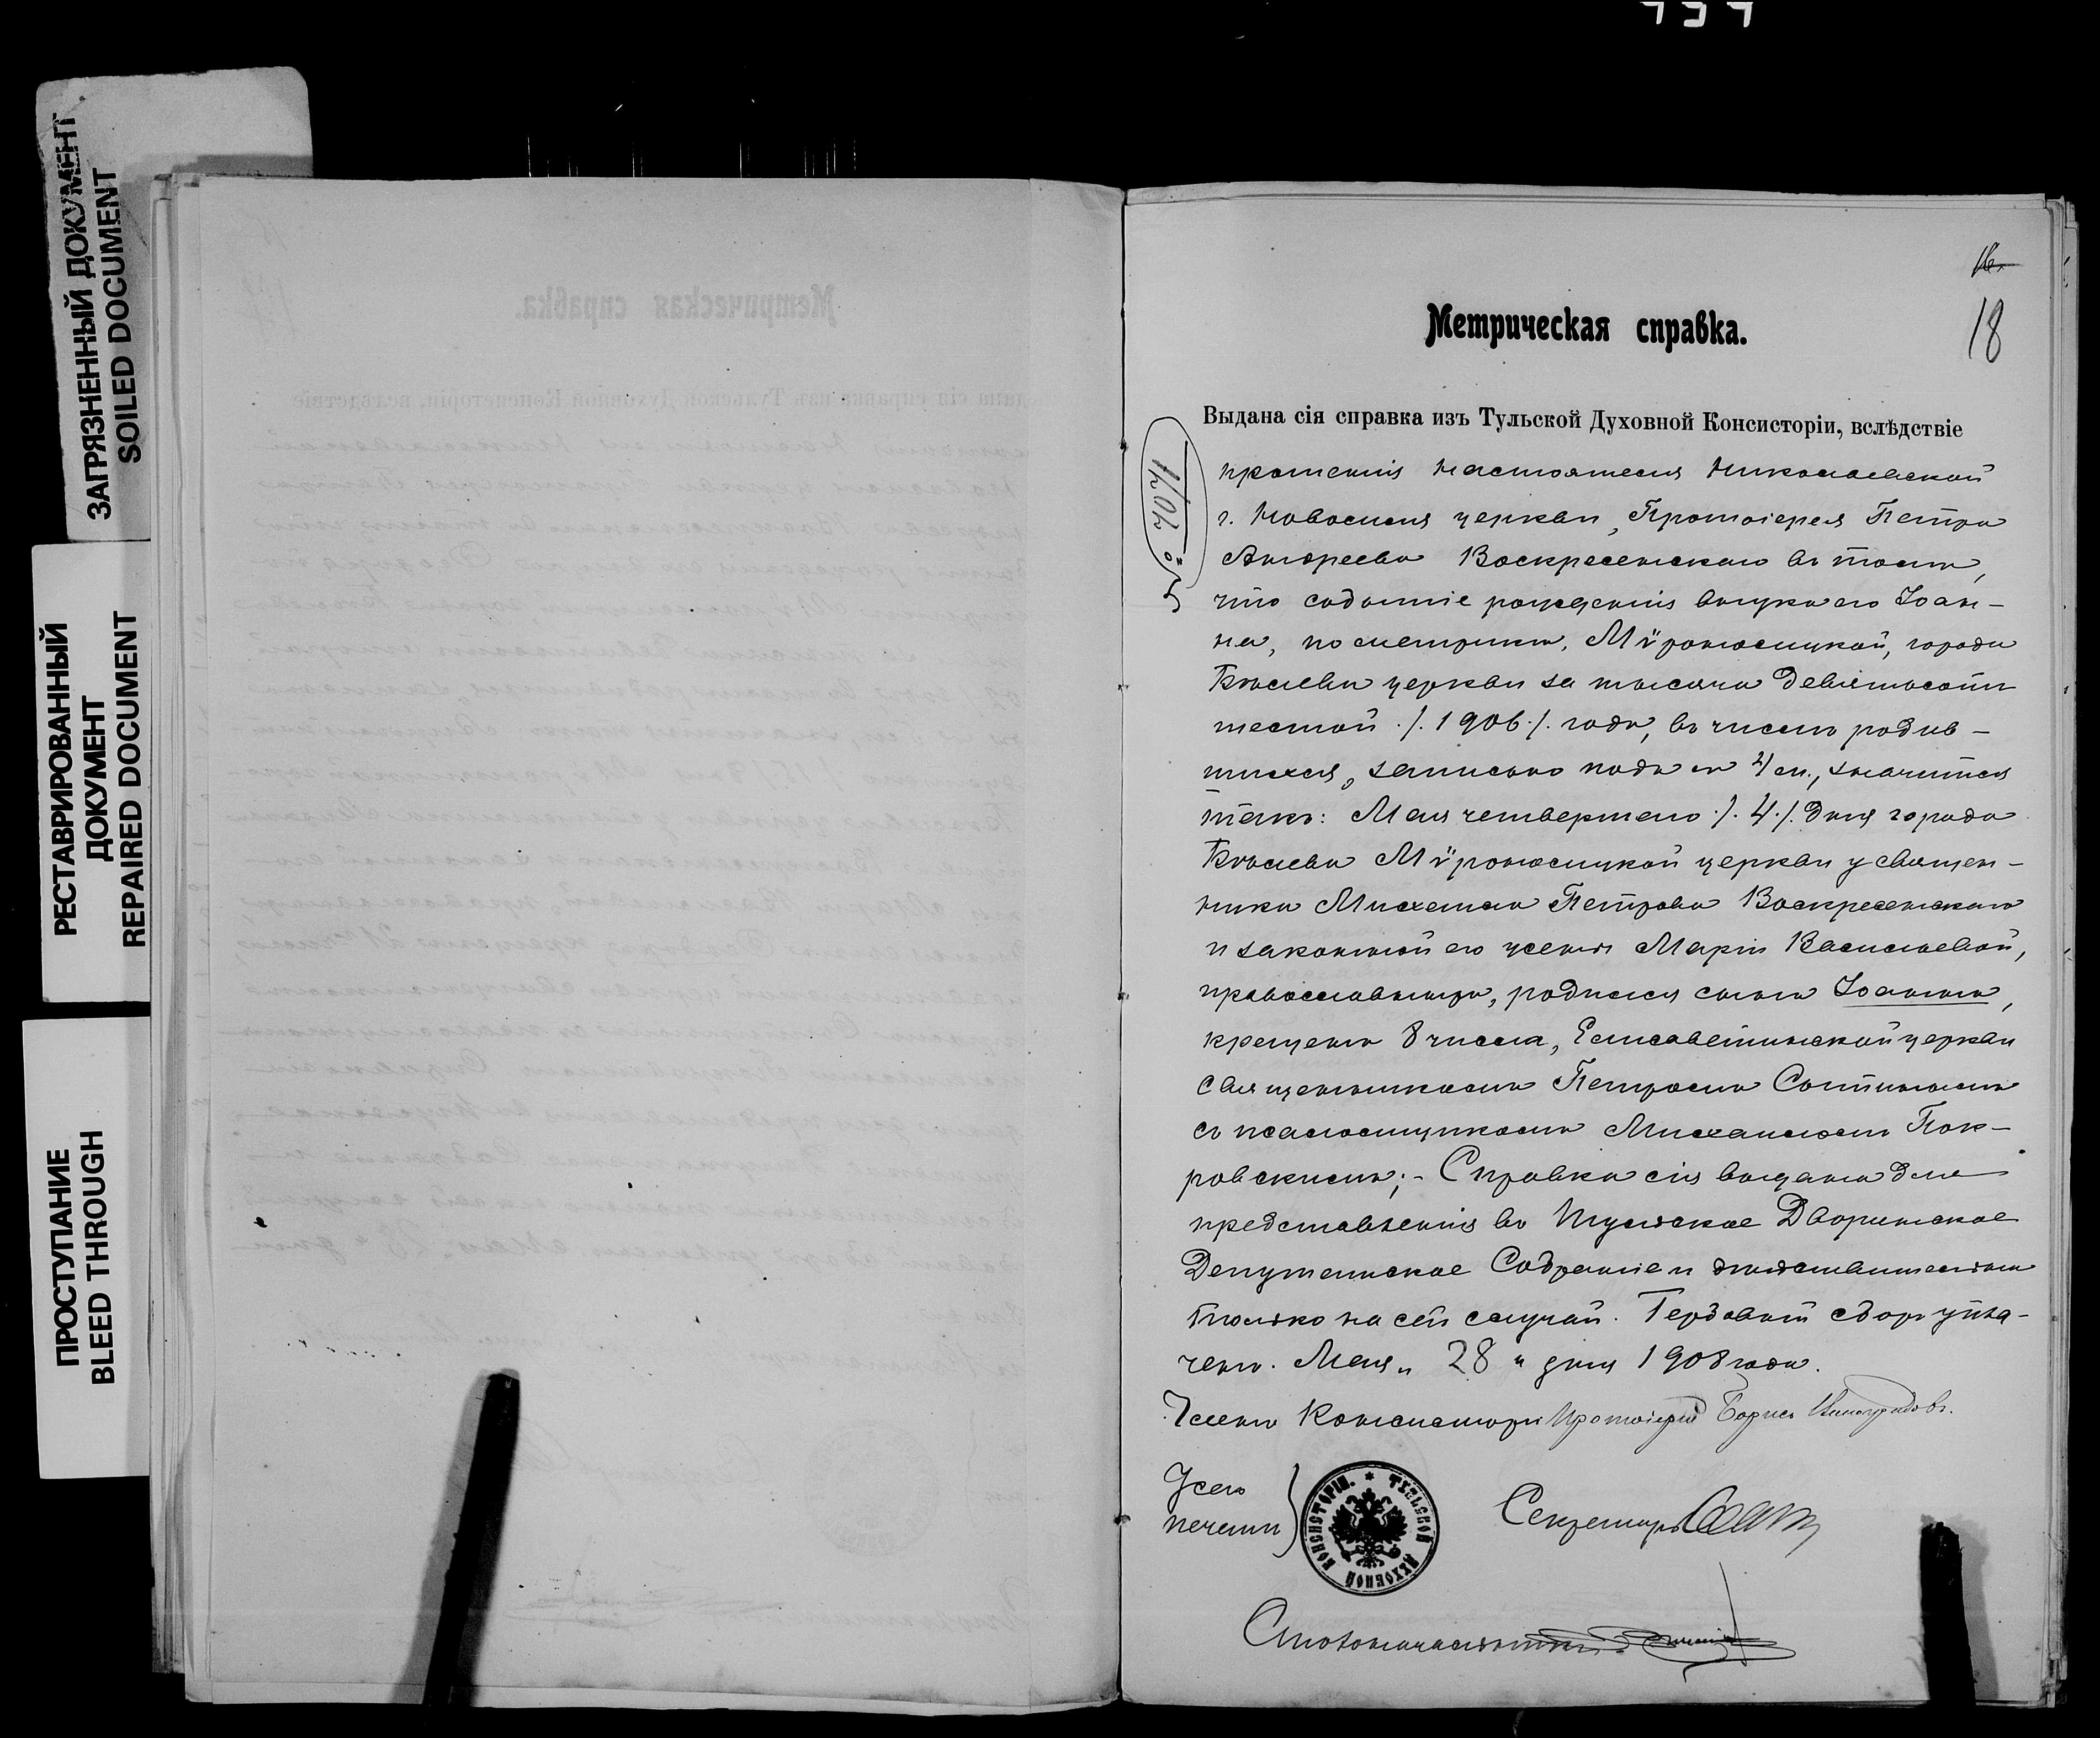 ЗАГРЯЗНЕННЫЙ ДОКУМЕНТ
SOILED DOCUMENT
РЕСТАВРИРОВАННЫЙ
ДОКУМЕНТ
REPAIRED DOCUMENT
ПРОСТУПАНИЕ
BLEED THROUGH
18
Метрическая справка.
Выдана сія справка изъ Тульской Духовной Консисторіи, вслѣдствіе
прошенія настоятеля Николаевской
г. Новосиля церкви, Протоіерея Петра
Андреева Воскресенскаго въ томъ,
что событіе рожденія внука его Іоан-
на, по метрикѣ, Мѵроносицкой, города
Бѣлева церкви за тысяча девятьсотъ
шестой ./. 1906 ./. годъ, въ числѣ родив-
шихся, записью подъ № 4 м., значится
такъ: Мая четвертаго ./. 4 ./. дня города
Бѣлева Мѵроносицкой церкви у священ-
ника Михаила Петрова Воскресенскаго
и законной его жены Маріи Васильевой,
православныхъ, родился сынъ Іоаннъ,
крещенъ 8 числа, Елисаветинской церкви
священникомъ Петромъ Сытинымъ
съ псаломщикомъ Михаиломъ Пок-
ровскимъ; - Справка сія выдана для
представленія въ Тульское Дворянское
Депутатское Собраніе и дѣйствительна
только на сей случай. Гербовый сборъ упла-
ченъ. Мая „ 28 " дня 1908 года.
Членъ Консисторіи Протоіерей Борисъ Виноградовъ.
У сего
печать
ТУЛЬСКОЙ ДУХОВНОЙ КОНСИСТОРІИ.
Секретарь
Столоначальникъ